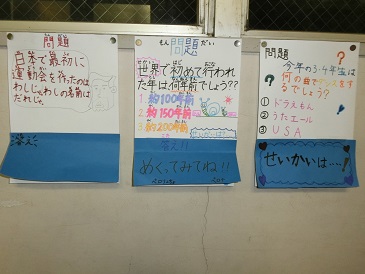 問題
日本で最初に
運動会を作ったのは
わしじゃ。わしの名前は
だれじゃ。
答え：
もん問題だい
世界で初めて行われ
た年は何年前でしょう??
1.約100年前
2.約150年前
3.約200年前
答え!!
めくってみてね!!
問題
今年の3・4年生は
何の曲でダンスをす
るでしょう？
① ドラえもん
② うたエール
③ USA
せいかいは…!